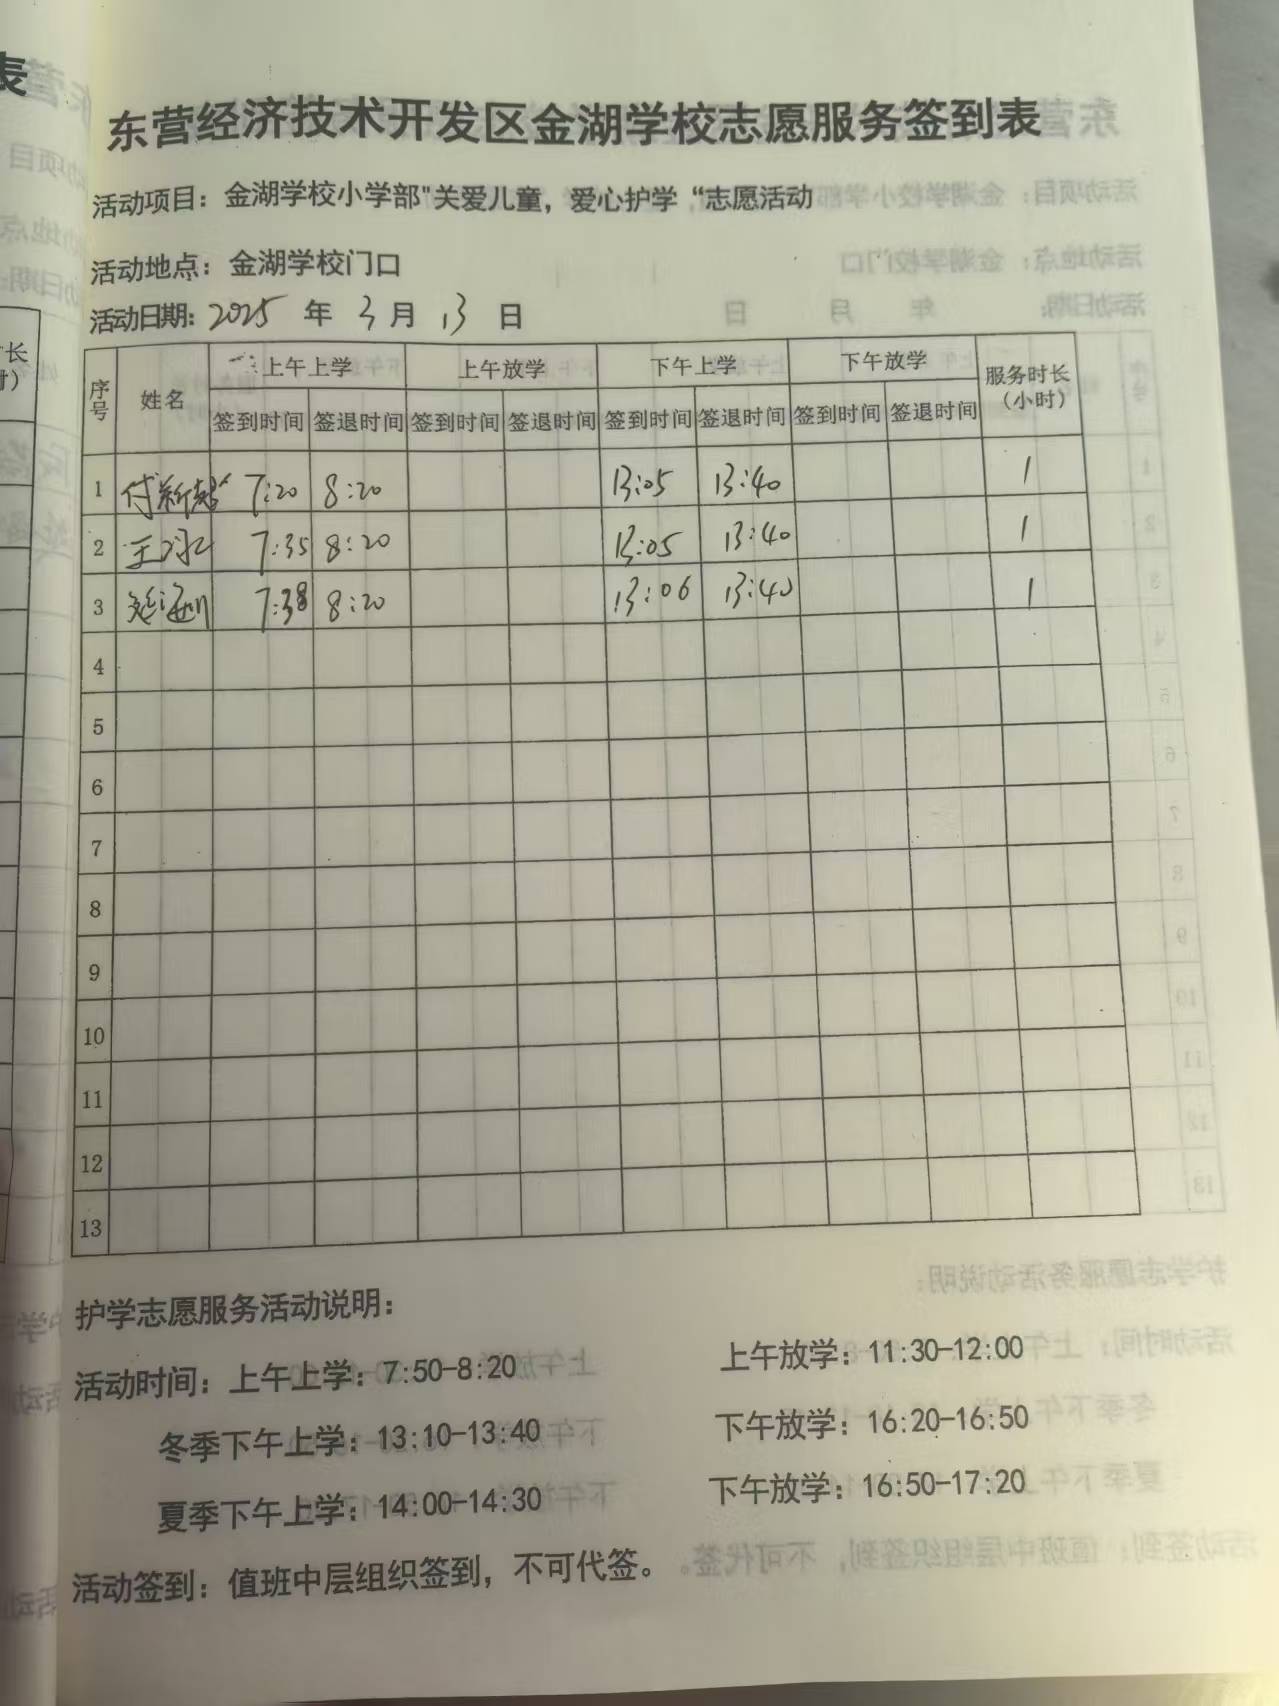 东营经济技术开发区金湖学校志愿服务签到表
活动项目：金湖学校小学部"关爱儿童，爱心护学“志愿活动
活动地点：金湖学校门口
活动日期：2025 年 3 月 13 日
序号 姓名 上午上学 上午放学 下午上学 下午放学 服务时长（小时）
签到时间 签退时间 签到时间 签退时间 签到时间 签退时间 签到时间 签退时间
1 付新 7:20 8:20 13:05 13:40 1
2 王 7:35 8:20 13:05 13:40 1
3 海川 7:38 8:20 13:06 13:40 1
4
5
6
7
8
9
10
11
12
13
护学志愿服务活动说明：
活动时间：上午上学：7:50-8:20 上午放学：11:30-12:00
冬季下午上学：13:10-13:40 下午放学：16:20-16:50
夏季下午上学：14:00-14:30 下午放学：16:50-17:20
活动签到：值班中层组织签到，不可代签。